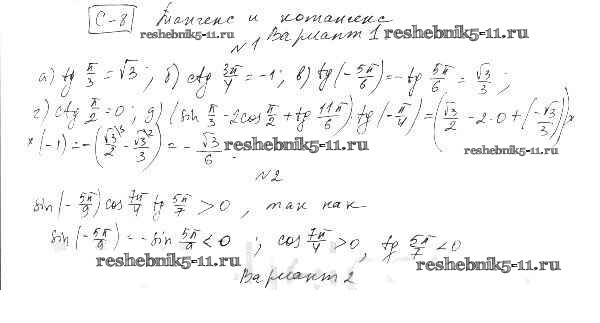 С-8 Тангенс и котангенс
reshebnik5-11.ru Вариант 1 reshebnik5-11.ru
№1
а) tg π/3 = √3; б) ctg 3π/4 = -1; в) tg(-5π/6) = -tg 5π/6 = √3/3;
г) ctg π/2 = 0; д) (sin π/3 - 2cos π/2 + tg 11π/6) tg(-π/4) = (√3/2 - 2·0 + (-√3/3)) ×
× (-1) = -(√3/2 \3 - √3/3 \2) = -√3/6. reshebnik5-11.ru reshebnik5-11.ru
№2
sin(-5π/9) cos 7π/4 tg 5π/7 > 0, так как
sin(-5π/9) = -sin 5π/9 < 0; cos 7π/4 > 0, tg 5π/7 < 0
reshebnik5-11.ru reshebnik5-11.ru
Вариант 2